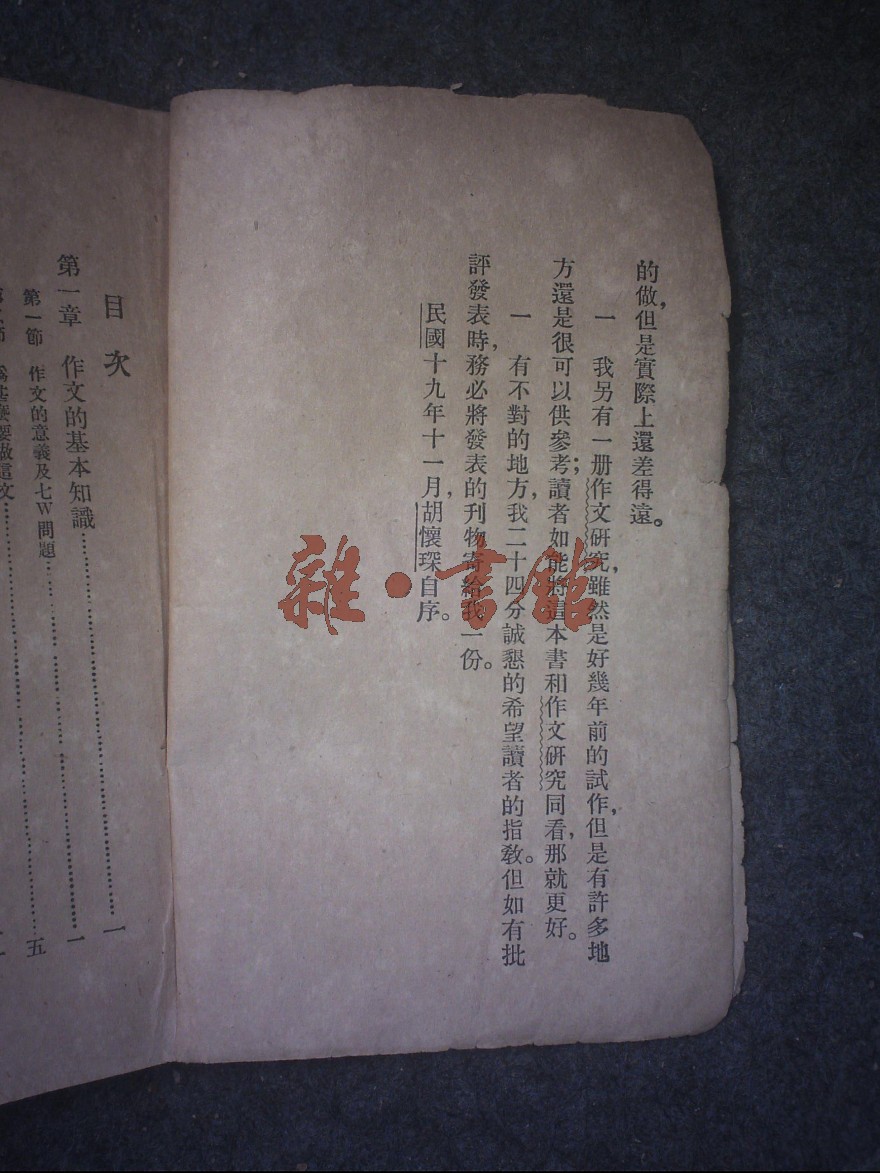 的做，但是實際上還差得遠。
一　我另有一册作文研究，雖然是好幾年前的試作，但是有許多地
方還是很可以供參考；讀者如能將這本書和作文研究同看，那就更好。
一　有不對的地方，我二十四分誠懇的希望讀者的指教。但如有批
評發表時，務必將發表的刊物寄給我一份。
民國十九年十一月，胡懷琛自序。
雜·書館
目次
第一章　作文的基本知識……一
第一節　作文的意義及七W問題……一
五